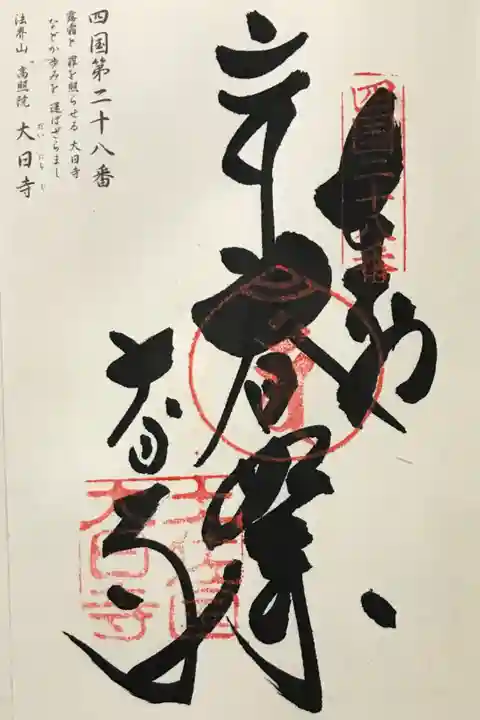 四国二十八番
奉納
大日寺
大日寺
四国第二十八番
露霜と 罪を照らせる 大日寺
などか歩みを 運ばざらまし
法界山 高照院 大日寺
だいにちじ